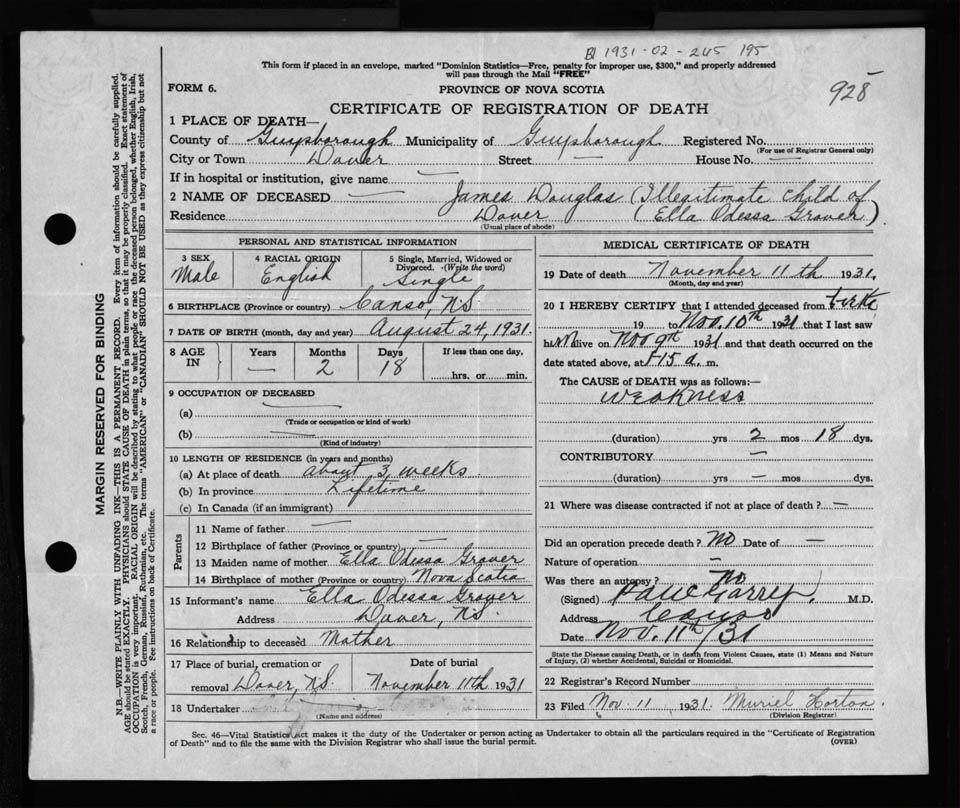 1931-02-245 195
928
This form if placed in an envelope, marked "Dominion Statistics—Free, penalty for improper use, $300," and properly addressed
will pass through the Mail "FREE"
FORM 6.
PROVINCE OF NOVA SCOTIA
CERTIFICATE OF REGISTRATION OF DEATH
1 PLACE OF DEATH—
County of Guysborough Municipality of Guysborough Registered No.
(For use of Registrar General only)
City or Town Dover Street — House No. —
If in hospital or institution, give name —
2 NAME OF DECEASED — James Douglas (Illegitimate child of
Residence Dover (Ella Odessa Graver)
(Usual place of abode)
PERSONAL AND STATISTICAL INFORMATION
3 SEX 4 RACIAL ORIGIN 5 Single, Married, Widowed or
Divorced. (Write the word)
Male English Single
6 BIRTHPLACE (Province or country) Canso, N.S.
7 DATE OF BIRTH (month, day and year) August 24, 1931.
8 AGE IN Years Months Days If less than one day,
— 2 18 hrs. or min.
9 OCCUPATION OF DECEASED
(a) —
(Trade or occupation or kind of work)
(b) —
(Kind of industry)
10 LENGTH OF RESIDENCE (in years and months)
(a) At place of death about 3 weeks
(b) In province Lifetime
(c) In Canada (if an immigrant)
Parents
11 Name of father —
12 Birthplace of father (Province or country) —
13 Maiden name of mother Ella Odessa Graver
14 Birthplace of mother (Province or country) Nova Scotia
15 Informant's name Ella Odessa Graver
Address Dover, N.S.
16 Relationship to deceased Mother
17 Place of burial, cremation or Date of burial
removal Dover, N.S. November 11th 1931
18 Undertaker
(Name and address)
MEDICAL CERTIFICATE OF DEATH
19 Date of death November 11th 1931.
(Month, day and year)
20 I HEREBY CERTIFY that I attended deceased from birth
19 to Nov. 10th 1931 that I last saw
him alive on Nov 9th 1931 and that death occurred on the
date stated above, at 15 a. m.
The CAUSE OF DEATH was as follows:—
Weakness
(duration) yrs 2 mos 18 dys.
CONTRIBUTORY —
(duration) yrs — mos dys.
21 Where was disease contracted if not at place of death? —
Did an operation precede death? No Date of —
Nature of operation —
Was there an autopsy? No
(Signed) M.D.
Address Canso
Date Nov. 11th/31
State the Disease causing Death, or in death from Violent Causes, state (1) Means and Nature
of Injury, (2) whether Accidental, Suicidal or Homicidal.
22 Registrar's Record Number
23 Filed Nov. 11 1931. Muriel Horton
(Division Registrar)
Sec. 46—Vital Statistics Act makes it the duty of the Undertaker or person acting as Undertaker to obtain all the particulars required in the "Certificate of Registration
of Death" and to file the same with the Division Registrar who shall issue the burial permit. (OVER)
MARGIN RESERVED FOR BINDING
N.B.—WRITE PLAINLY WITH UNFADING INK—THIS IS A PERMANENT RECORD. Every item of information should be carefully supplied.
AGE should be stated EXACTLY. PHYSICIANS should STATE CAUSE OF DEATH in plain terms, so that it may be properly classified. Exact statement of
OCCUPATION is very important. RACIAL ORIGIN will be described by stating to what people or race the deceased person belonged, whether English, Irish,
Scotch, French, German, Russian, Ruthenian, etc. The terms "AMERICAN" or "CANADIAN" SHOULD NOT BE USED as they express citizenship but not
a race or people. See instructions on back of Certificate.